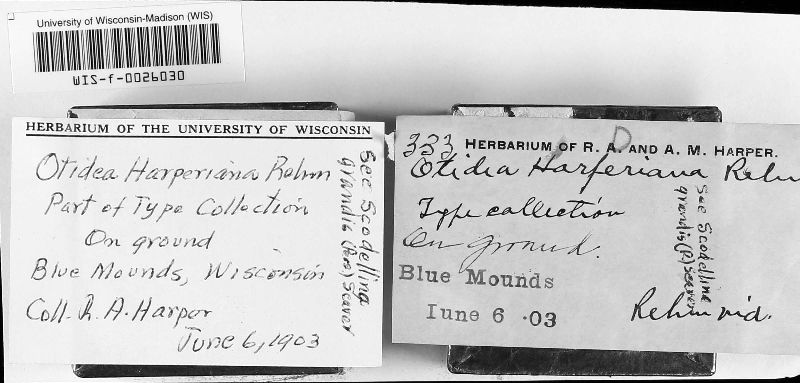 University of Wisconsin-Madison (WIS)
WIS-f-0026030
HERBARIUM OF THE UNIVERSITY OF WISCONSIN
Otidea Harperiana Rehm
Part of Type Collection
On ground
Blue Mounds, Wisconsin
Coll. R. A. Harper
June 6, 1903
See Scodellina
grandis (Pers) Seaver
333 HERBARIUM OF R. A. AND A. M. HARPER.
D
Otidea Harperiana Rehm
Type collection
On ground.
Blue Mounds
Iune 6 .03
Rehm vid.
see Scodellina
grandis (P) Seaver